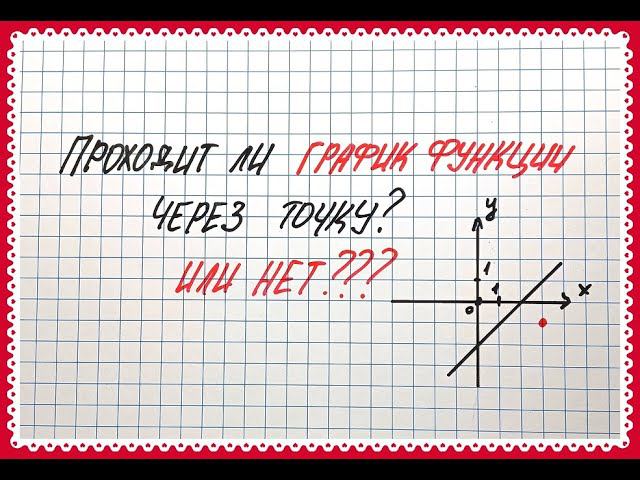 Проходит ли график функции
через точку?
или нет???
y
1
0
1
x